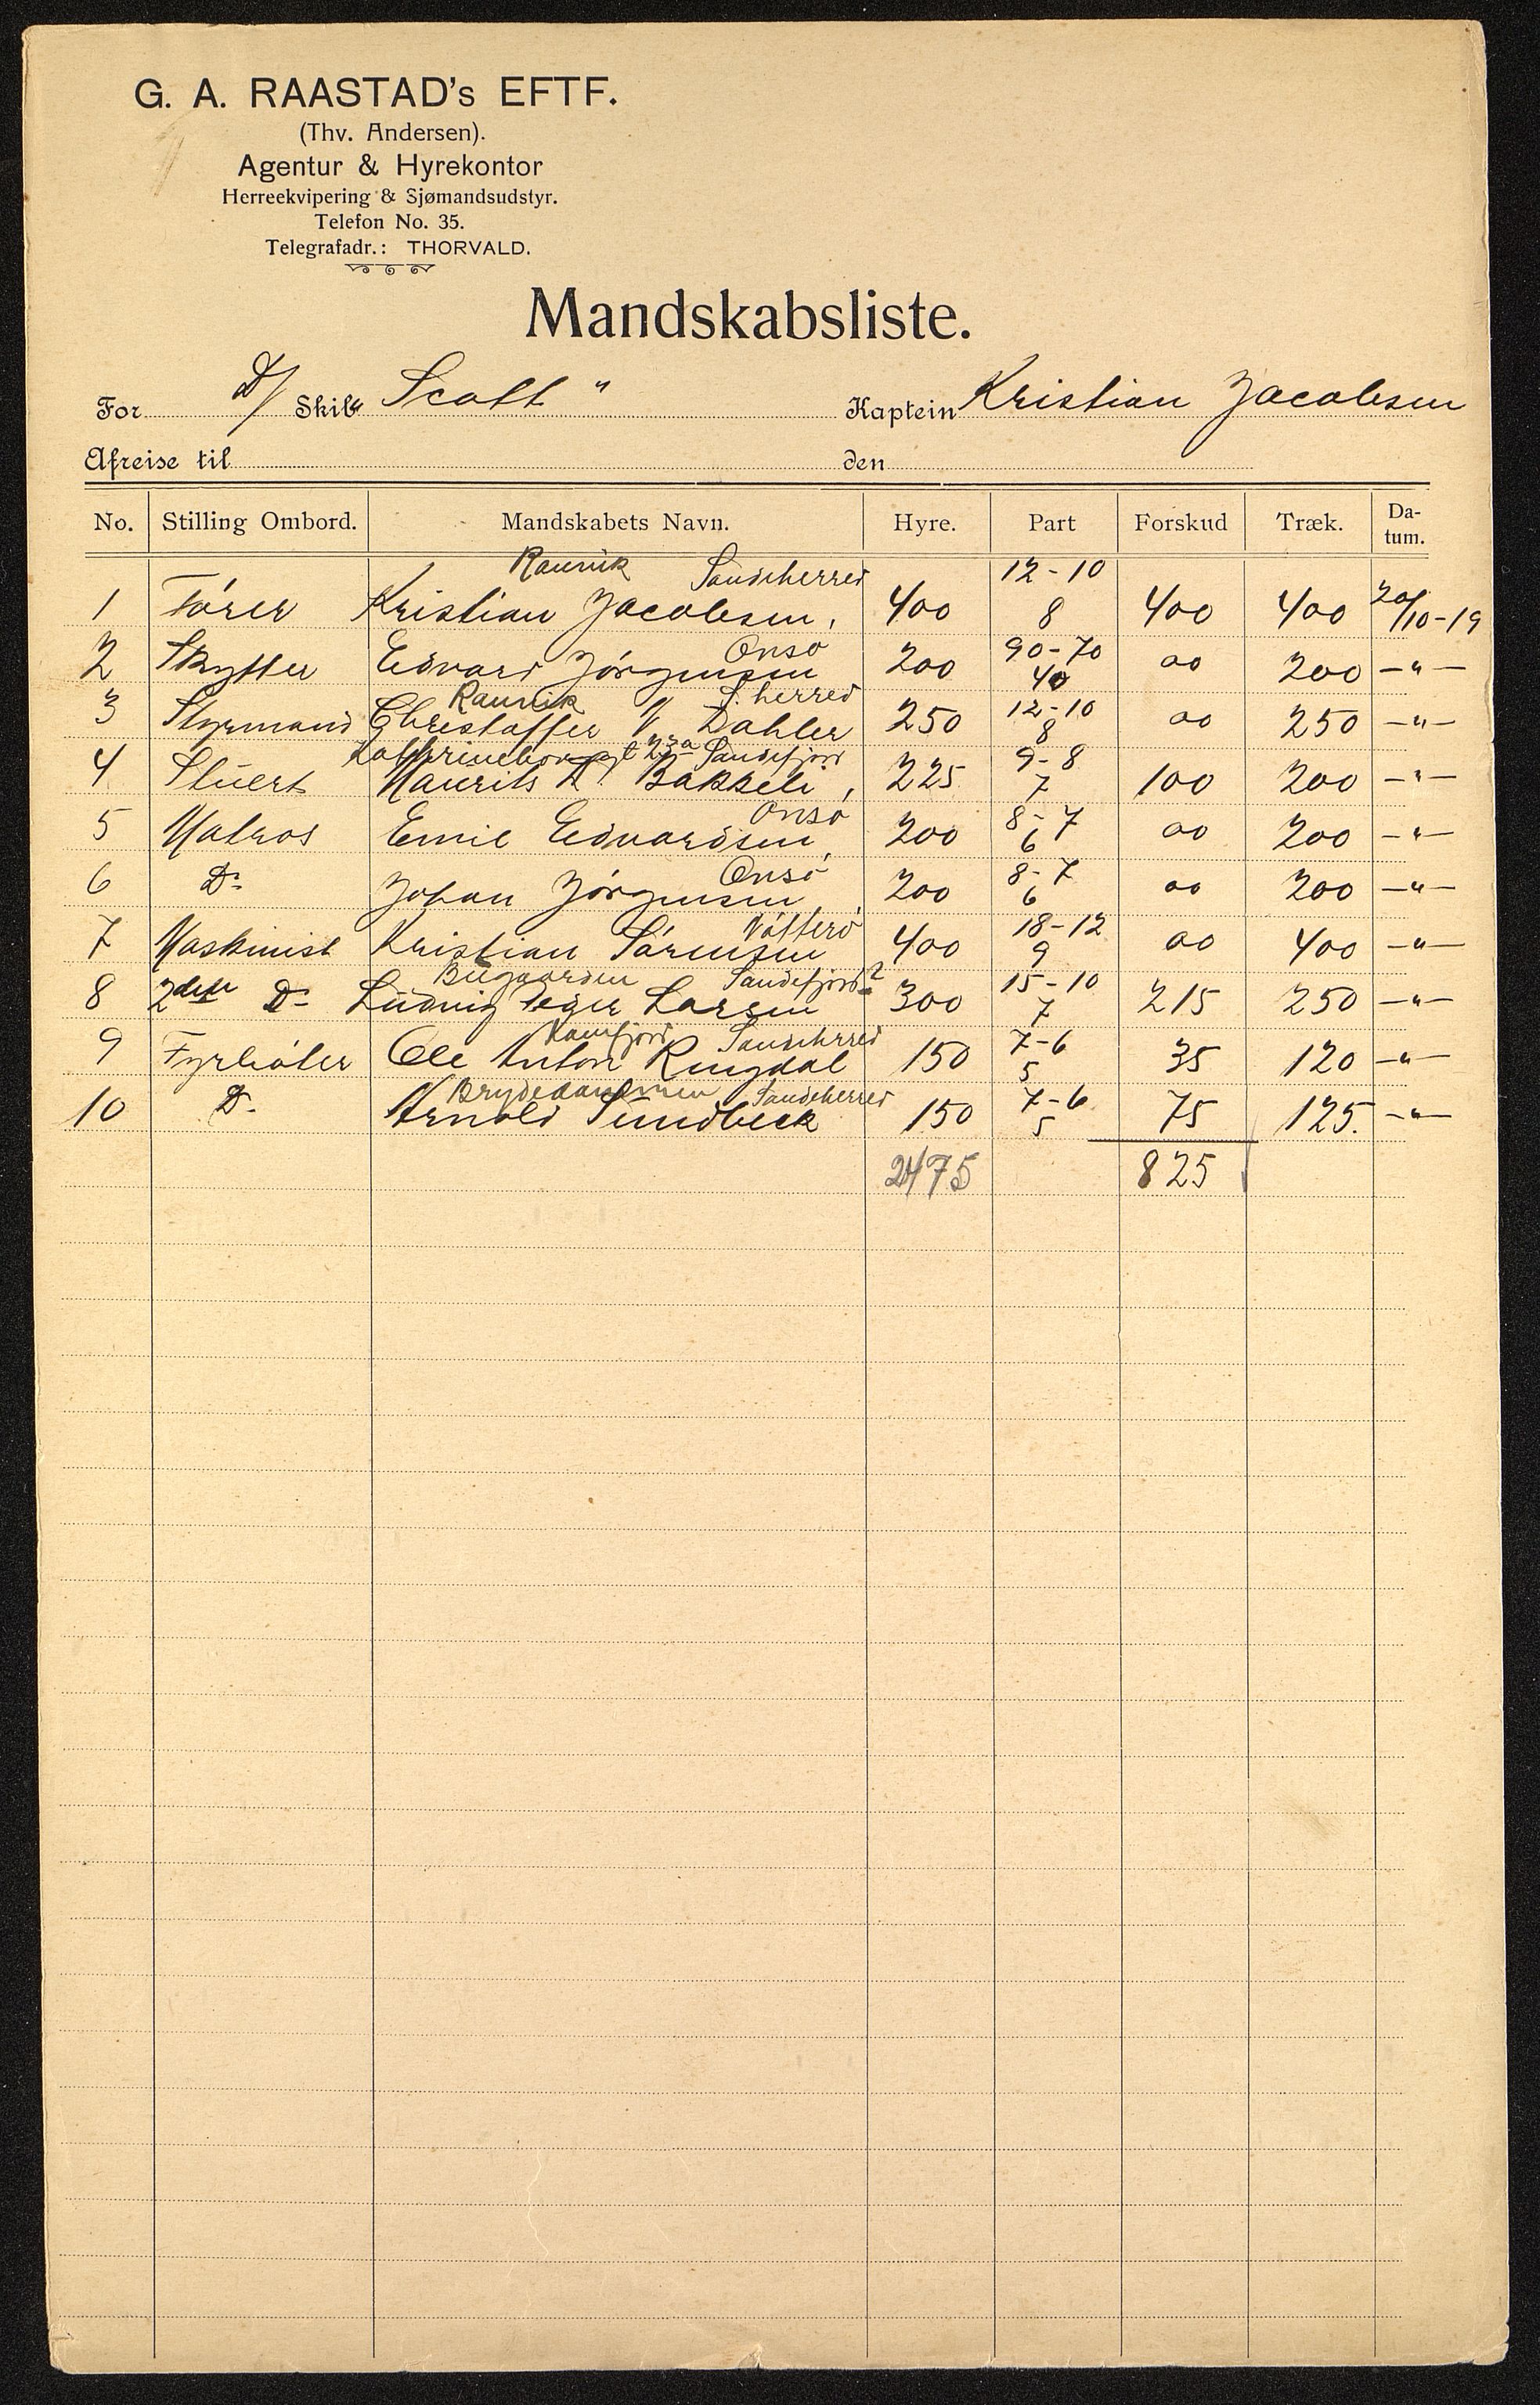 G. A. RAASTAD's EFTF.
(Thv. Andersen).
Agentur & Hyrekontor
Herreekvipering & Sjømandsudstyr.
Telefon No. 35.
Telegrafadr.: THORVALD.
Mandskabsliste.
For D/ Skib „Scott" Kaptein Kristian Jacobsen
Afreise til den
No. Stilling Ombord. Mandskabets Navn. Hyre. Part Forskud Træk. Da-tum.
Raunik Sandeherred 12-10
1 Förer Kristian Jacobsen, 400 8 400 400 20/10-19
Onsö 90-70
2 Skytter Edvard Jörgensen 200 40 00 200 -"-
Raunik S. herred 12-10
3 Styrmand Christoffer V Dahler 250 8 00 250 -"-
23a Sandefjord 9-8
4 Stuert Maurits A. Bakkeli, 225 7 100 200 -"-
Onsö 8-7
5 Matros Emil Edvardsen, 200 6 00 200 -"-
Onsö 8-7
6 Do Johan Jörgensen, 200 6 00 200 -"-
Nötterö 18-12
7 Maskinist Kristian Sörensen 400 9 00 400 -"-
Bugaarden Sandefjord? 15-10
8 2den Do Ludvig Eger Larsen 300 7 215 250 -"-
Kamfjord Sandeherred 7-6
9 Fyrböter Ole Anton Ringdal 150 5 35 120 -"-
Brydedammen Sandeherred 7-6
10 Do Arnold Sundbeck 150 5 75 125. -"-
2475 825